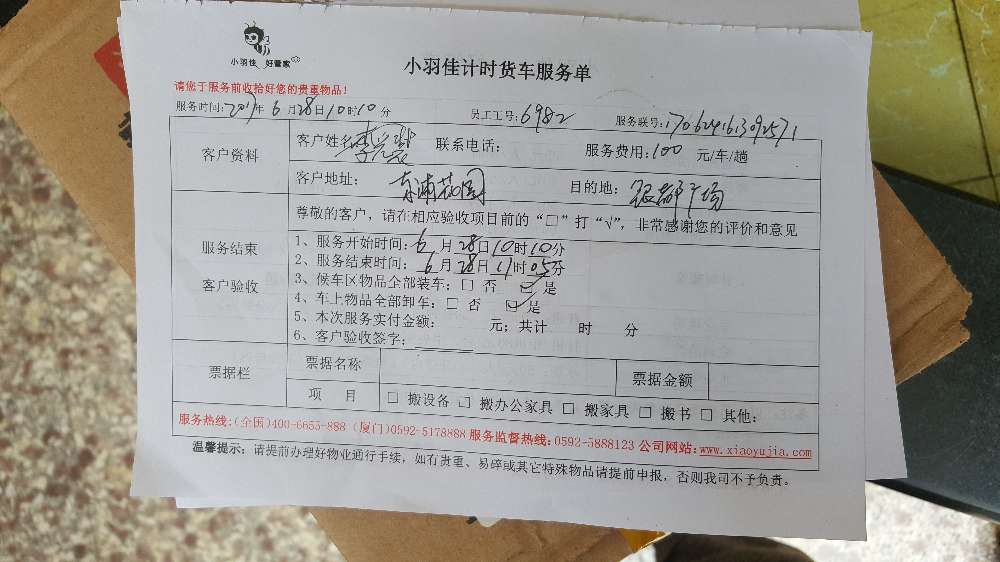 小羽佳 好管家
小羽佳计时货车服务单
请您于服务前收拾好您的贵重物品!
服务时间:2017年6月28日10时10分 员工工号:6982 服务联号:1706241613092571
客户资料 客户姓名:李 联系电话: 服务费用:100 元/车/趟
客户地址: 东浦花园 目的地: 银都广场
服务结束 客户验收
尊敬的客户，请在相应验收项目前的“□”打“√”，非常感谢您的评价和意见
1、服务开始时间:6月28日10时10分
2、服务结束时间:6月28日11时05分
3、候车区物品全部装车: □ 否 ☑ 是
4、车上物品全部卸车: □ 否 ☑ 是
5、本次服务实付金额: 元; 共计 时 分
6、客户验收签字:
票据栏 票据名称 票据金额
项 目 □ 搬设备 □ 搬办公家具 □ 搬家具 □ 搬书 □ 其他:
服务热线:(全国)400-6655-888 (厦门)0592-5178888 服务监督热线:0592-5888123 公司网站:www.xiaoyujia.com
温馨提示: 请提前办理好物业通行手续，如有贵重、易碎或其它特殊物品请提前申报，否则我司不予负责。